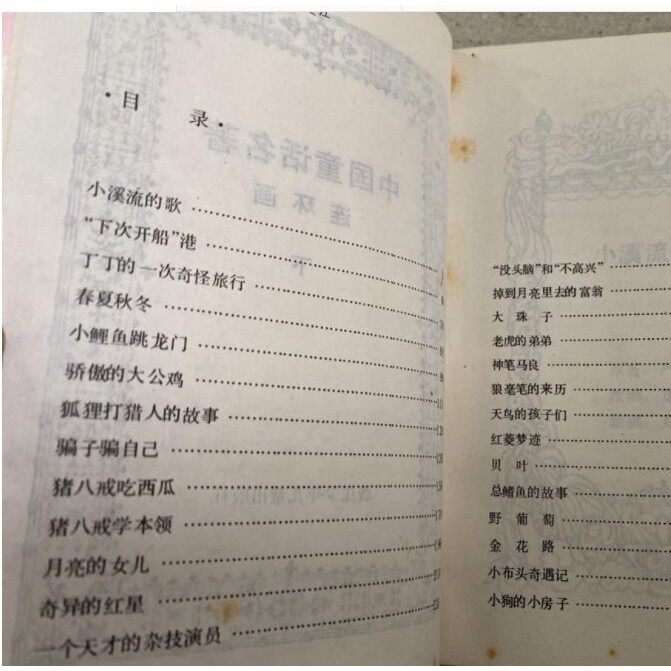 ·目 录·
小溪流的歌
“下次开船”港
丁丁的一次奇怪旅行
春夏秋冬
小鲤鱼跳龙门
骄傲的大公鸡
狐狸打猎人的故事
骗子骗自己
猪八戒吃西瓜
猪八戒学本领
月亮的女儿
奇异的红星
一个天才的杂技演员
“没头脑”和“不高兴”
掉到月亮里去的富翁
大珠子
老虎的弟弟
神笔马良
狼毫笔的来历
天鸟的孩子们
红菱梦迹
贝叶
总鳍鱼的故事
野葡萄
金花路
小布头奇遇记
小狗的小房子
中国童话名著
连环画
下